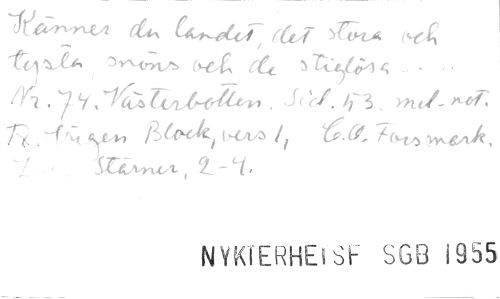 Känner du landet, det stora och
tysta, snöns och de stiglösa . . . .
Nr. 74. Västerbotten. Sid. 53. mel-not.
Jürgen Block, vers 1, C.O. Forsmark.
Stärner, 2-4.
NYKTERHETSF SGB 1955